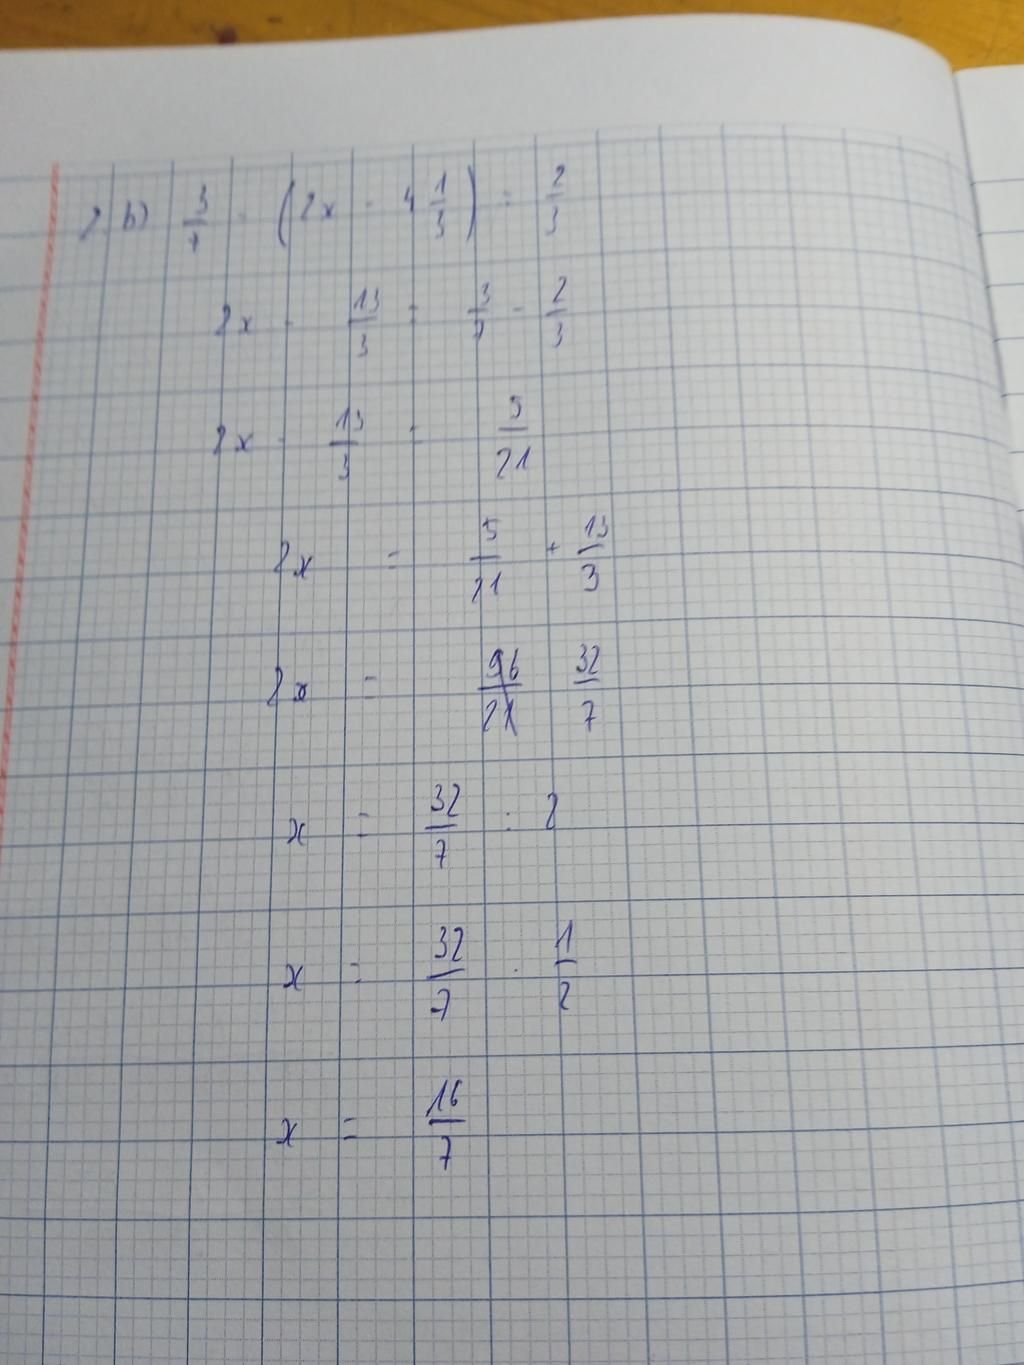 2. b) 3/7 - (2x - 4 1/3) = 2/3
2x - 13/3 = 3/7 - 2/3
2x - 13/3 = 5/21
2x = 5/21 + 13/3
2x = 96/21 32/7
x = 32/7 : 2
x = 32/7 . 1/2
x = 16/7